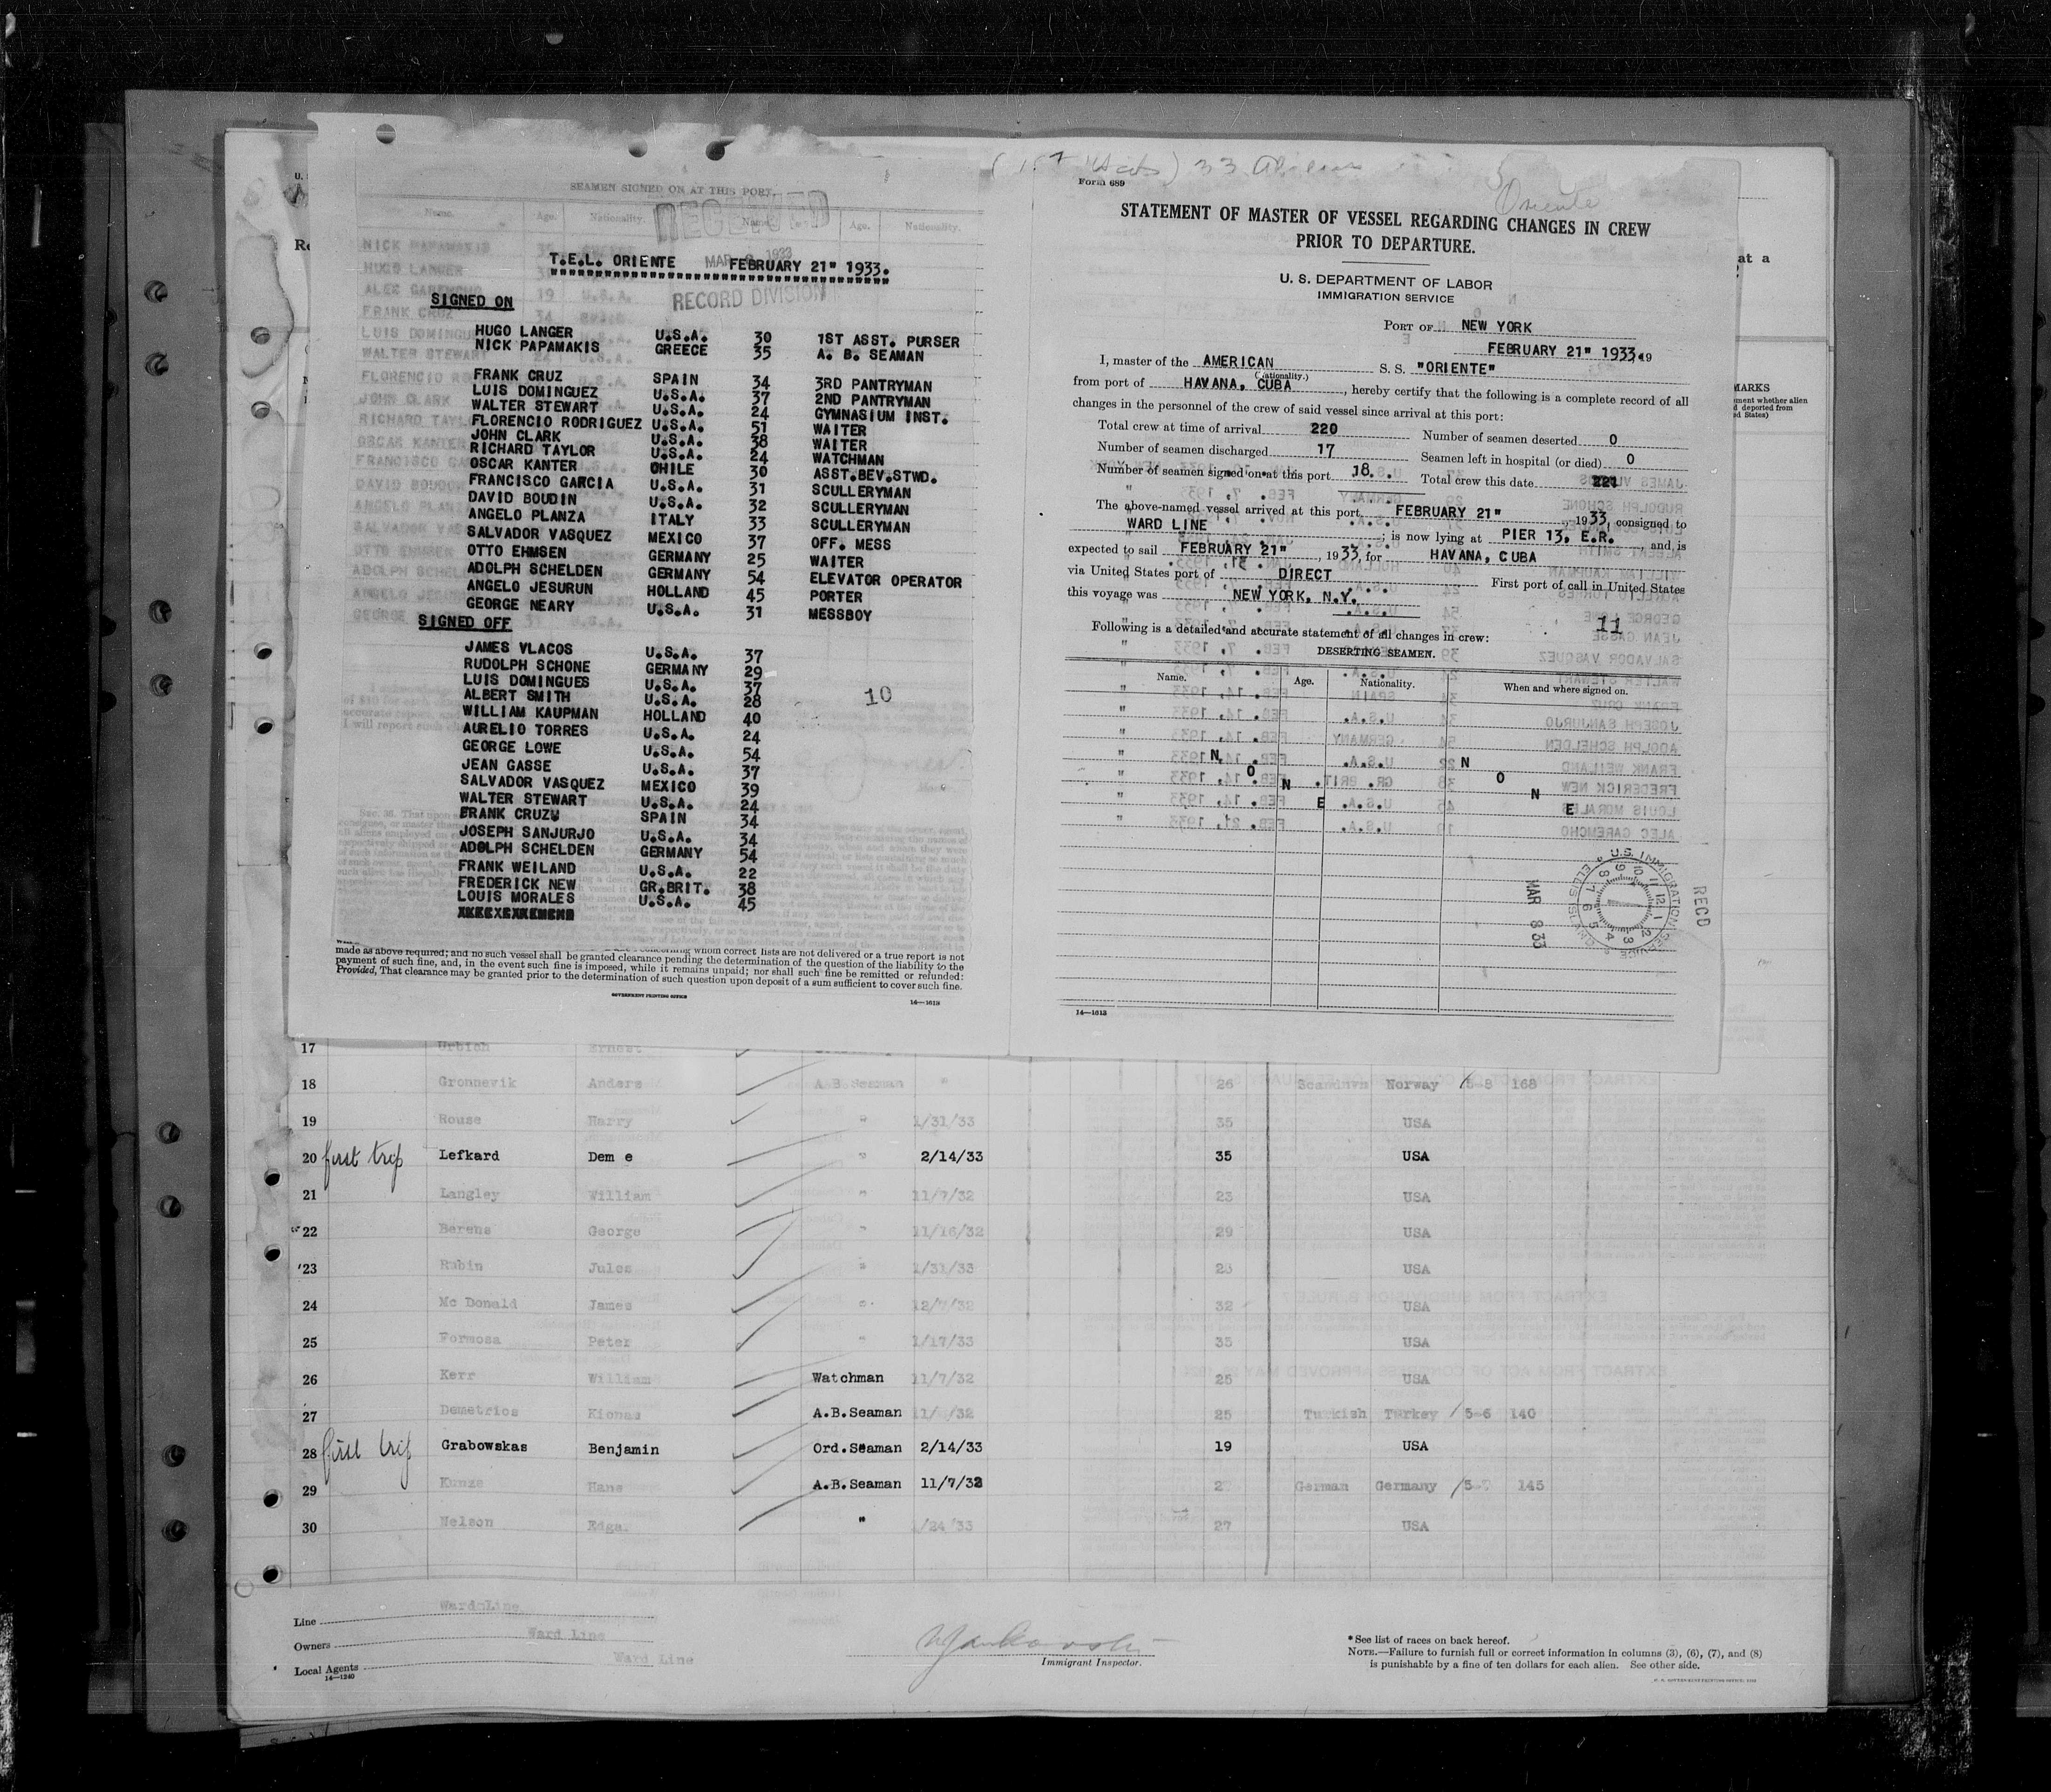 SEAMEN SIGNED ON AT THIS PORT.
Name. Age. Nationality. Name. Age. Nationality.
RECEIVED
MAR 1933
RECORD DIVISION
T.E.L. ORIENTE FEBRUARY 21" 1933.
SIGNED ON
HUGO LANGER U.S.A. 30 1ST ASST. PURSER
NICK PAPAMAKIS GREECE 35 A. B. SEAMAN
FRANK CRUZ SPAIN 34 3RD PANTRYMAN
LUIS DOMINGUEZ U.S.A. 37 2ND PANTRYMAN
WALTER STEWART U.S.A. 24 GYMNASIUM INST.
FLORENCIO RODRIGUEZ U.S.A. 51 WAITER
JOHN CLARK U.S.A. 38 WAITER
RICHARD TAYLOR U.S.A. 24 WATCHMAN
OSCAR KANTER CHILE 30 ASST.BEV.STWD.
FRANCISCO GARCIA U.S.A. 31 SCULLERYMAN
DAVID BOUDIN U.S.A. 32 SCULLERYMAN
ANGELO PLANZA ITALY 33 SCULLERYMAN
SALVADOR VASQUEZ MEXICO 37 OFF. MESS
OTTO EHMSEN GERMANY 25 WAITER
ADOLPH SCHELDEN GERMANY 54 ELEVATOR OPERATOR
ANGELO JESURUN HOLLAND 45 PORTER
GEORGE NEARY U.S.A. 31 MESSBOY
SIGNED OFF
JAMES VLACOS U.S.A. 37
RUDOLPH SCHONE GERMANY 29
LUIS DOMINGUES U.S.A. 37
ALBERT SMITH U.S.A. 28
10
WILLIAM KAUPMAN HOLLAND 40
AURELIO TORRES U.S.A. 24
GEORGE LOWE U.S.A. 54
JEAN GASSE U.S.A. 37
SALVADOR VASQUEZ MEXICO 39
WALTER STEWART U.S.A. 24
FRANK CRUZ SPAIN 34
JOSEPH SANJURJO U.S.A. 34
ADOLPH SCHELDEN GERMANY 54
FRANK WEILAND U.S.A. 22
FREDERICK NEW GR.BRIT. 38
LOUIS MORALES U.S.A. 45
concerning whom correct lists are not delivered or a true report is not
made as above required; and no such vessel shall be granted clearance pending the determination of the question of the liability to the
payment of such fine, and, in the event such fine is imposed, while it remains unpaid; nor shall such fine be remitted or refunded:
Provided, That clearance may be granted prior to the determination of such question upon deposit of a sum sufficient to cover such fine.
GOVERNMENT PRINTING OFFICE 14—1613
33 Aliens
Form 689
Oriente
STATEMENT OF MASTER OF VESSEL REGARDING CHANGES IN CREW
PRIOR TO DEPARTURE.
U. S. DEPARTMENT OF LABOR
IMMIGRATION SERVICE
PORT OF NEW YORK
FEBRUARY 21" 1933, 19
I, master of the AMERICAN S. S. "ORIENTE"
(Nationality.)
from port of HAVANA, CUBA, hereby certify that the following is a complete record of all
changes in the personnel of the crew of said vessel since arrival at this port:
Total crew at time of arrival 220 Number of seamen deserted 0
Number of seamen discharged 17 Seamen left in hospital (or died) 0
Number of seamen signed on at this port 18. Total crew this date 221
The above-named vessel arrived at this port FEBRUARY 21", 1933, consigned to
WARD LINE; is now lying at PIER 13, E.R., and is
expected to sail FEBRUARY 21", 1933, for HAVANA, CUBA
via United States port of DIRECT First port of call in United States
this voyage was NEW YORK, N.Y.
11
Following is a detailed and accurate statement of all changes in crew:
DESERTING SEAMEN.
Name. Age. Nationality. When and where signed on.
N O N E N O N E
U.S. IMMIGRATION SERVICE ELLIS ISLAND
RECD
MAR 8 33
14—1613
at a
MARKS
17 Urbich Ernest
18 Gronnevik Anders A.B. Seaman " 26 Scandnvn Norway 5-8 168
19 Rouse Harry " 1/31/33 35 USA
20 first trip Lefkard Dem e " 2/14/33 35 USA
21 Langley William " 11/7/32 23 USA
22 Berens George " 11/16/32 29 USA
23 Rubin Jules " 1/31/33 23 USA
24 Mc Donald James " 12/7/32 32 USA
25 Formosa Peter " 1/17/33 35 USA
26 Kerr William Watchman 11/7/32 25 USA
27 Demetrios Kionas A.B.Seaman 11/ /32 25 Turkish Turkey 5-6 140
28 first trip Grabowskas Benjamin Ord.Seaman 2/14/33 19 USA
29 Kunze Hans A.B.Seaman 11/7/32 2 German Germany 5- 145
30 Nelson Edga. " 1/24/33 27 USA
Line Ward Line
Owners Ward Line
Local Agents Ward Line
14—1240
Immigrant Inspector.
*See list of races on back hereof.
NOTE.—Failure to furnish full or correct information in columns (3), (6), (7), and (8)
is punishable by a fine of ten dollars for each alien. See other side.